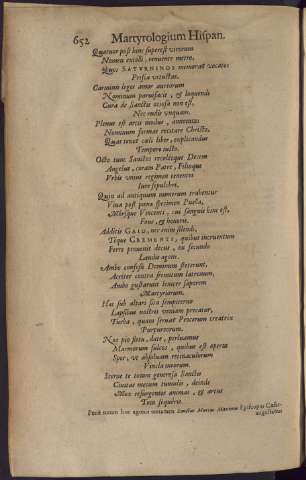 652 Martyrologium Hispan.
Quatuor post hunc superest virorum
Nomen extolli, renuente metro,
Quos SATVRNINOS memorat vocatos
Prisca vetustas.
Carminis leges amor aureorum
Nominum parvi facit, & loquendi
Cura de Sanctis vitiosa non est,
Nec rudis unquam.
Plenus est artis modus, annotatas
Nominum formas recitare Christo,
Quas tenet cæli liber, explicandus
Tempore iusto.
Octo tunc Sanctos recolet que Decem
Angelus, coram Patre, Filioque
Vrbis vnius regimen tenentes
Iure sepulchri.
Quin ad antiquum numerum trahentur
Viva post pœnæ specimen Puella,
Morsque Vincenti, cui sanguis hinc est,
Fons, & honoris.
Additis GAIO, nec enim silendi,
Teque CREMENTI, quibus incruentum
Ferre provenit decus, ex secundo
Laudis agone.
Ambo confessi Dominum steterunt,
Acriter contra fremitum latronum,
Ambo gustarunt leviter saporem
Martyriorum.
Hæc sub altari sita sempiterno
Lapsibus nostris veniam precatur,
Turba, quam servat Procerum creatrix
Purpureorum.
Nos pio fletu, date, perluamus
Marmorum sulcos, quibus est operta
Spes, vt absolvam retinaculorum
Vincla meorum.
Sterne te totam generosa Sanctis
Civitas mecum tumulis, deinde
Mox resurgentes animas, & artus
Tota sequeris.
Porrò totum hoc agonis certamen Sanctus Marcus Maximus Episcopus Cæsar-
augustanus